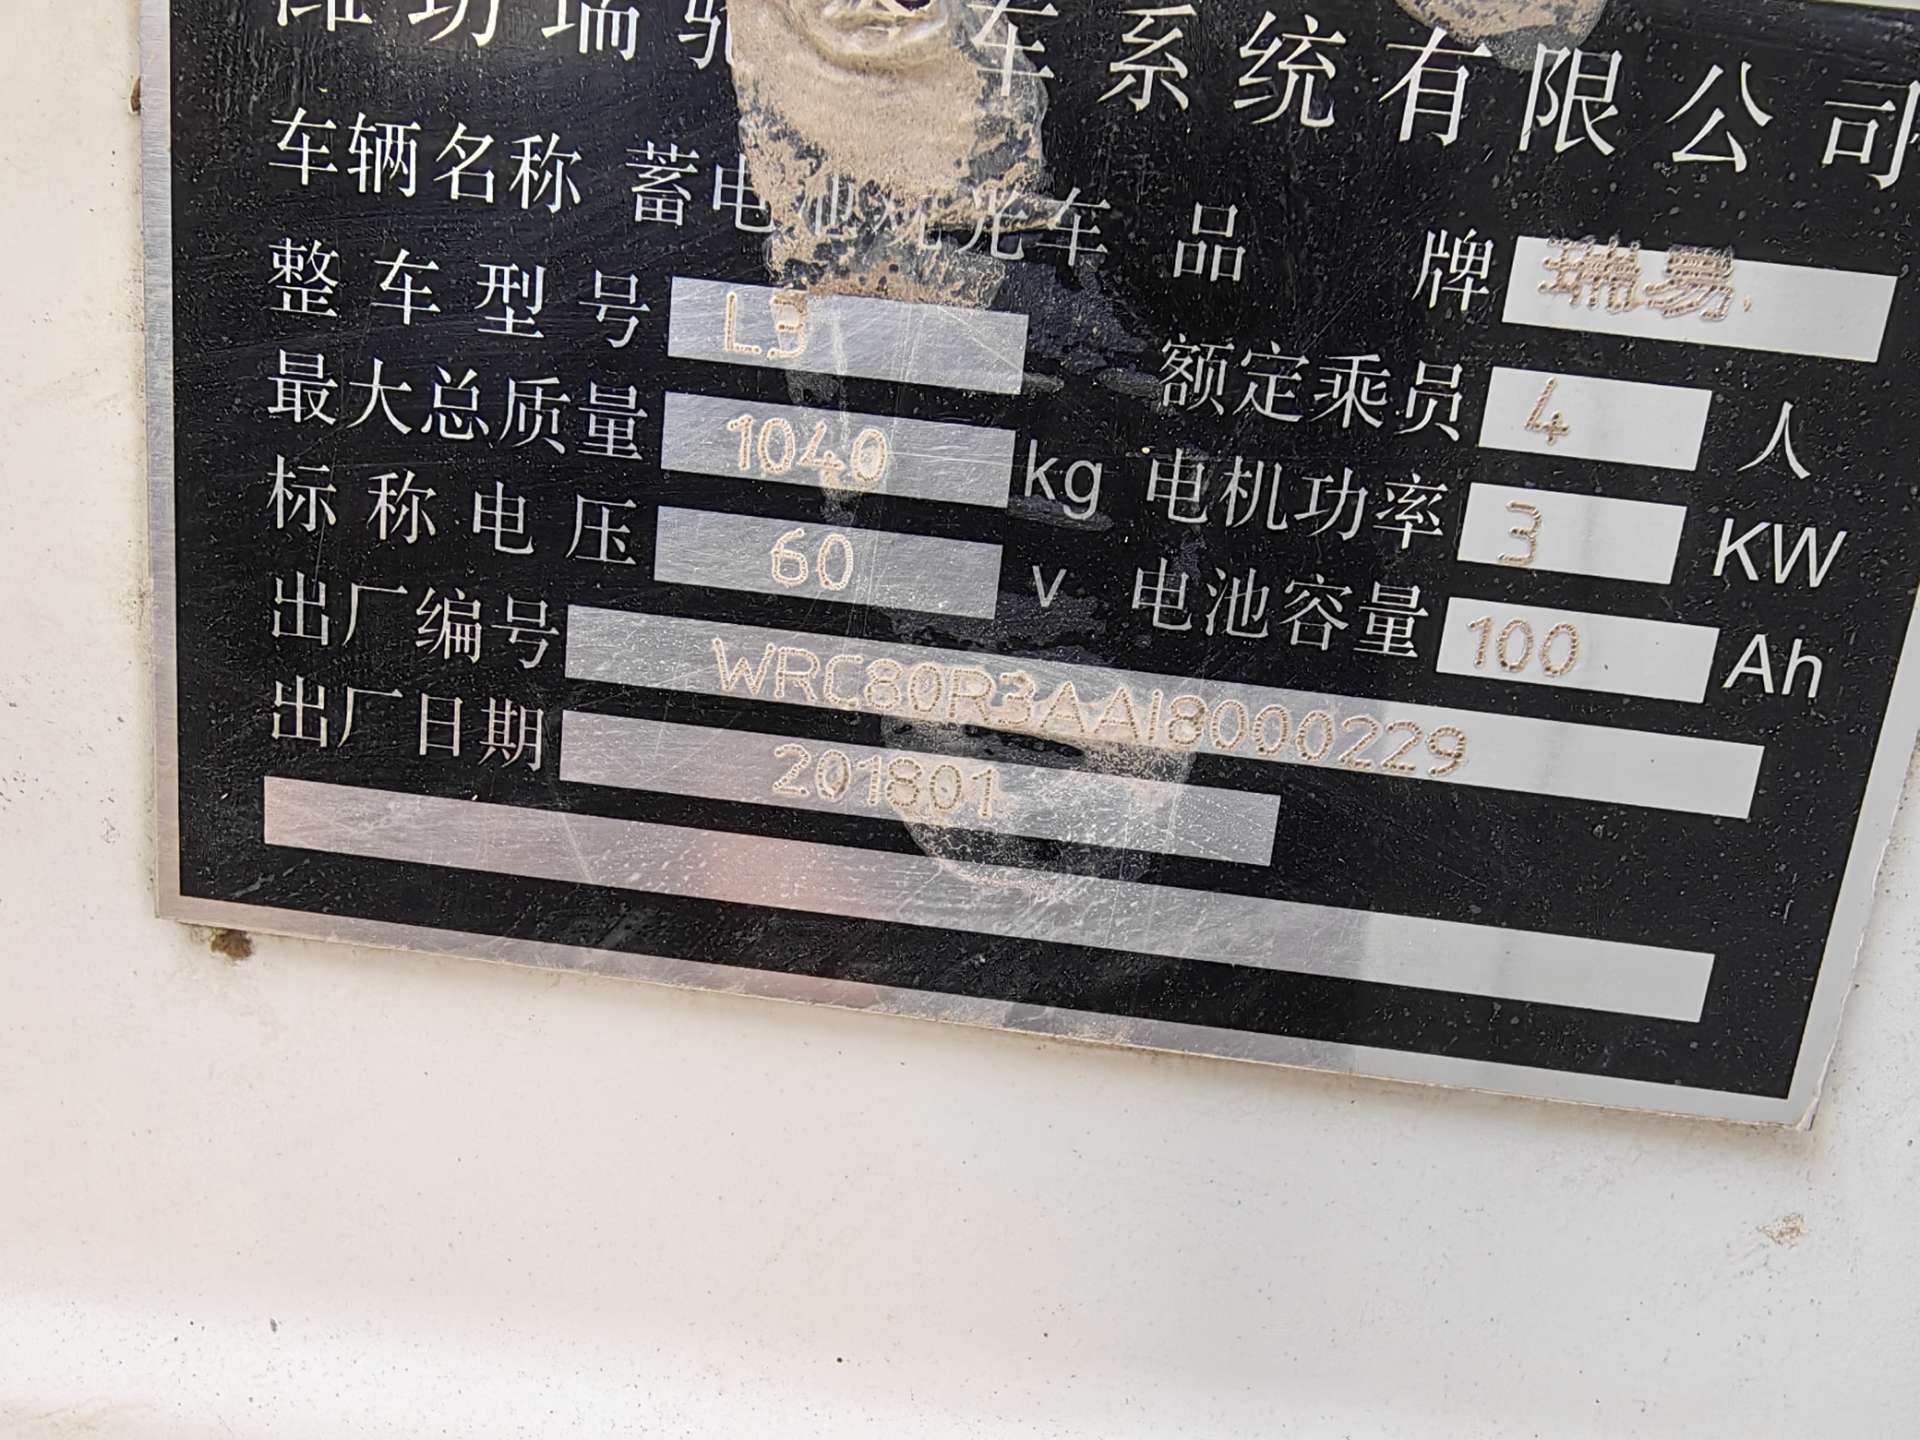 潍坊瑞驰汽车系统有限公司
车辆名称 蓄电池观光车 品牌 瑞易
整车型号 L3 额定乘员 4 人
最大总质量 1040 kg 电机功率 3 KW
标称电压 60 v 电池容量 100 Ah
出厂编号 WRC80R3AA18000229
出厂日期 201801